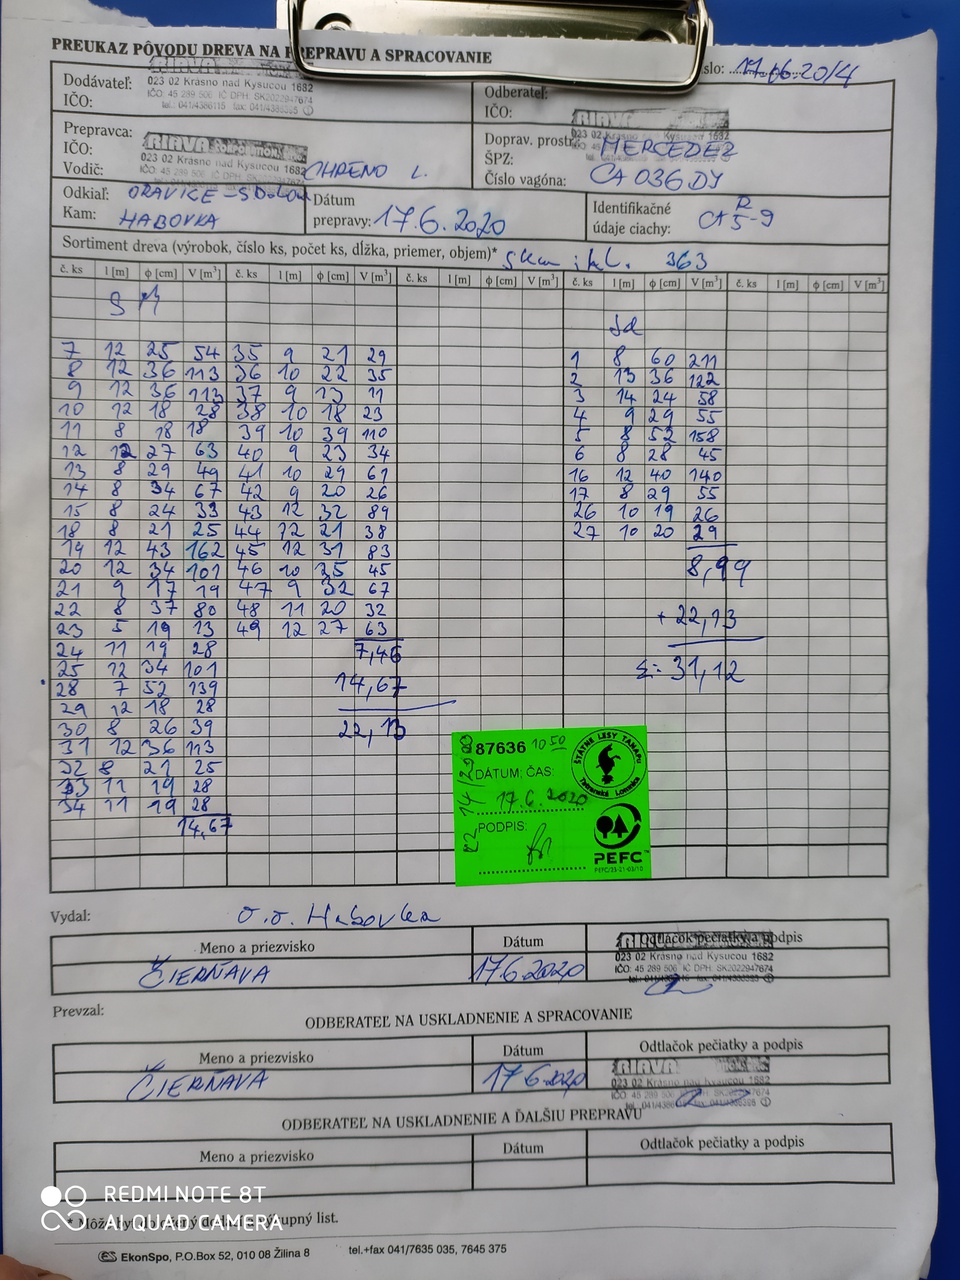 PREUKAZ PÔVODU DREVA NA PREPRAVU A SPRACOVANIE
17.06.20/4
Dodávateľ: RIAVA
IČO: 023 02 Krásno nad Kysucou 1682
IČO: 45 289 506 IČ DPH: SK2022947674
Odberateľ:
IČO:
RIAVA
023 02 Krásno nad Kysucou 1682
Prepravca: RIAVA
IČO: 023 02 Krásno nad Kysucou 1682
Vodič: CHRENO L.
Doprav. prostr. MERCEDEZ
ŠPZ:
Číslo vagóna: CA 036 DY
Odkiaľ: ORAVICE
Kam: HABOVKA
Dátum
prepravy: 17.6.2020
Identifikačné
údaje ciachy: 5-9
Sortiment dreva (výrobok, číslo ks, počet ks, dĺžka, priemer, objem)* 363
č. ks l [m] ϕ [cm] V [m³] č. ks l [m] ϕ [cm] V [m³] č. ks l [m] ϕ [cm] V [m³] č. ks l [m] ϕ [cm] V [m³] č. ks l [m] ϕ [cm] V [m³]
SM
Jd
7 12 25 54 35 9 21 29
1 8 60 211
8 12 36 113 36 10 22 35
2 13 36 122
9 12 36 113 37 9 13 11
3 14 24 58
10 12 18 28 38 10 18 23
4 9 29 55
11 8 18 18 39 10 39 110
5 8 52 158
12 12 27 63 40 9 23 34
6 8 28 45
13 8 29 49 41 10 29 61
16 12 40 140
14 8 34 67 42 9 20 26
17 8 29 55
15 8 24 33 43 12 32 89
26 10 19 26
18 8 21 25 44 12 21 38
27 10 20 29
19 12 43 162 45 12 31 83
8,99
20 12 34 101 46 10 25 45
21 9 17 19 47 9 32 67
22 8 37 80 48 11 20 32
+ 22,13
23 5 19 13 49 12 27 63
24 11 19 28
7,46
Σ: 31,12
25 12 34 101
14,67
28 7 52 139
29 12 18 28
22,13
30 8 26 39
31 12 36 113
32 8 21 25
33 11 19 28
34 11 19 28
14,67
87636 10 50
DÁTUM: ČAS:
17.6.2020
PODPIS:
ŠTÁTNE LESY TANAPu
Tatranská Lomnica
PEFC™
PEFC/23-21-03/10
Vydal: O.O. Habovka
Meno a priezvisko Dátum Odtlačok pečiatky a podpis
ČIERŇAVA 17.6.2020
RIAVA
023 02 Krásno nad Kysucou 1682
IČO: 45 289 506 IČ DPH: SK2022947674
Prevzal:
ODBERATEĽ NA USKLADNENIE A SPRACOVANIE
Meno a priezvisko Dátum Odtlačok pečiatky a podpis
ČIERŇAVA 17.6.2020
RIAVA
023 02 Krásno nad Kysucou 1682
IČO: 45 289 506 IČ DPH: SK2022947674
ODBERATEĽ NA USKLADNENIE A ĎALŠIU PREPRAVU
Meno a priezvisko Dátum Odtlačok pečiatky a podpis
REDMI NOTE 8T
AI QUAD CAMERA
* Môže byť list.
ES EkonSpo, P.O.Box 52, 010 08 Žilina 8 tel.+fax 041/7635 035, 7645 375